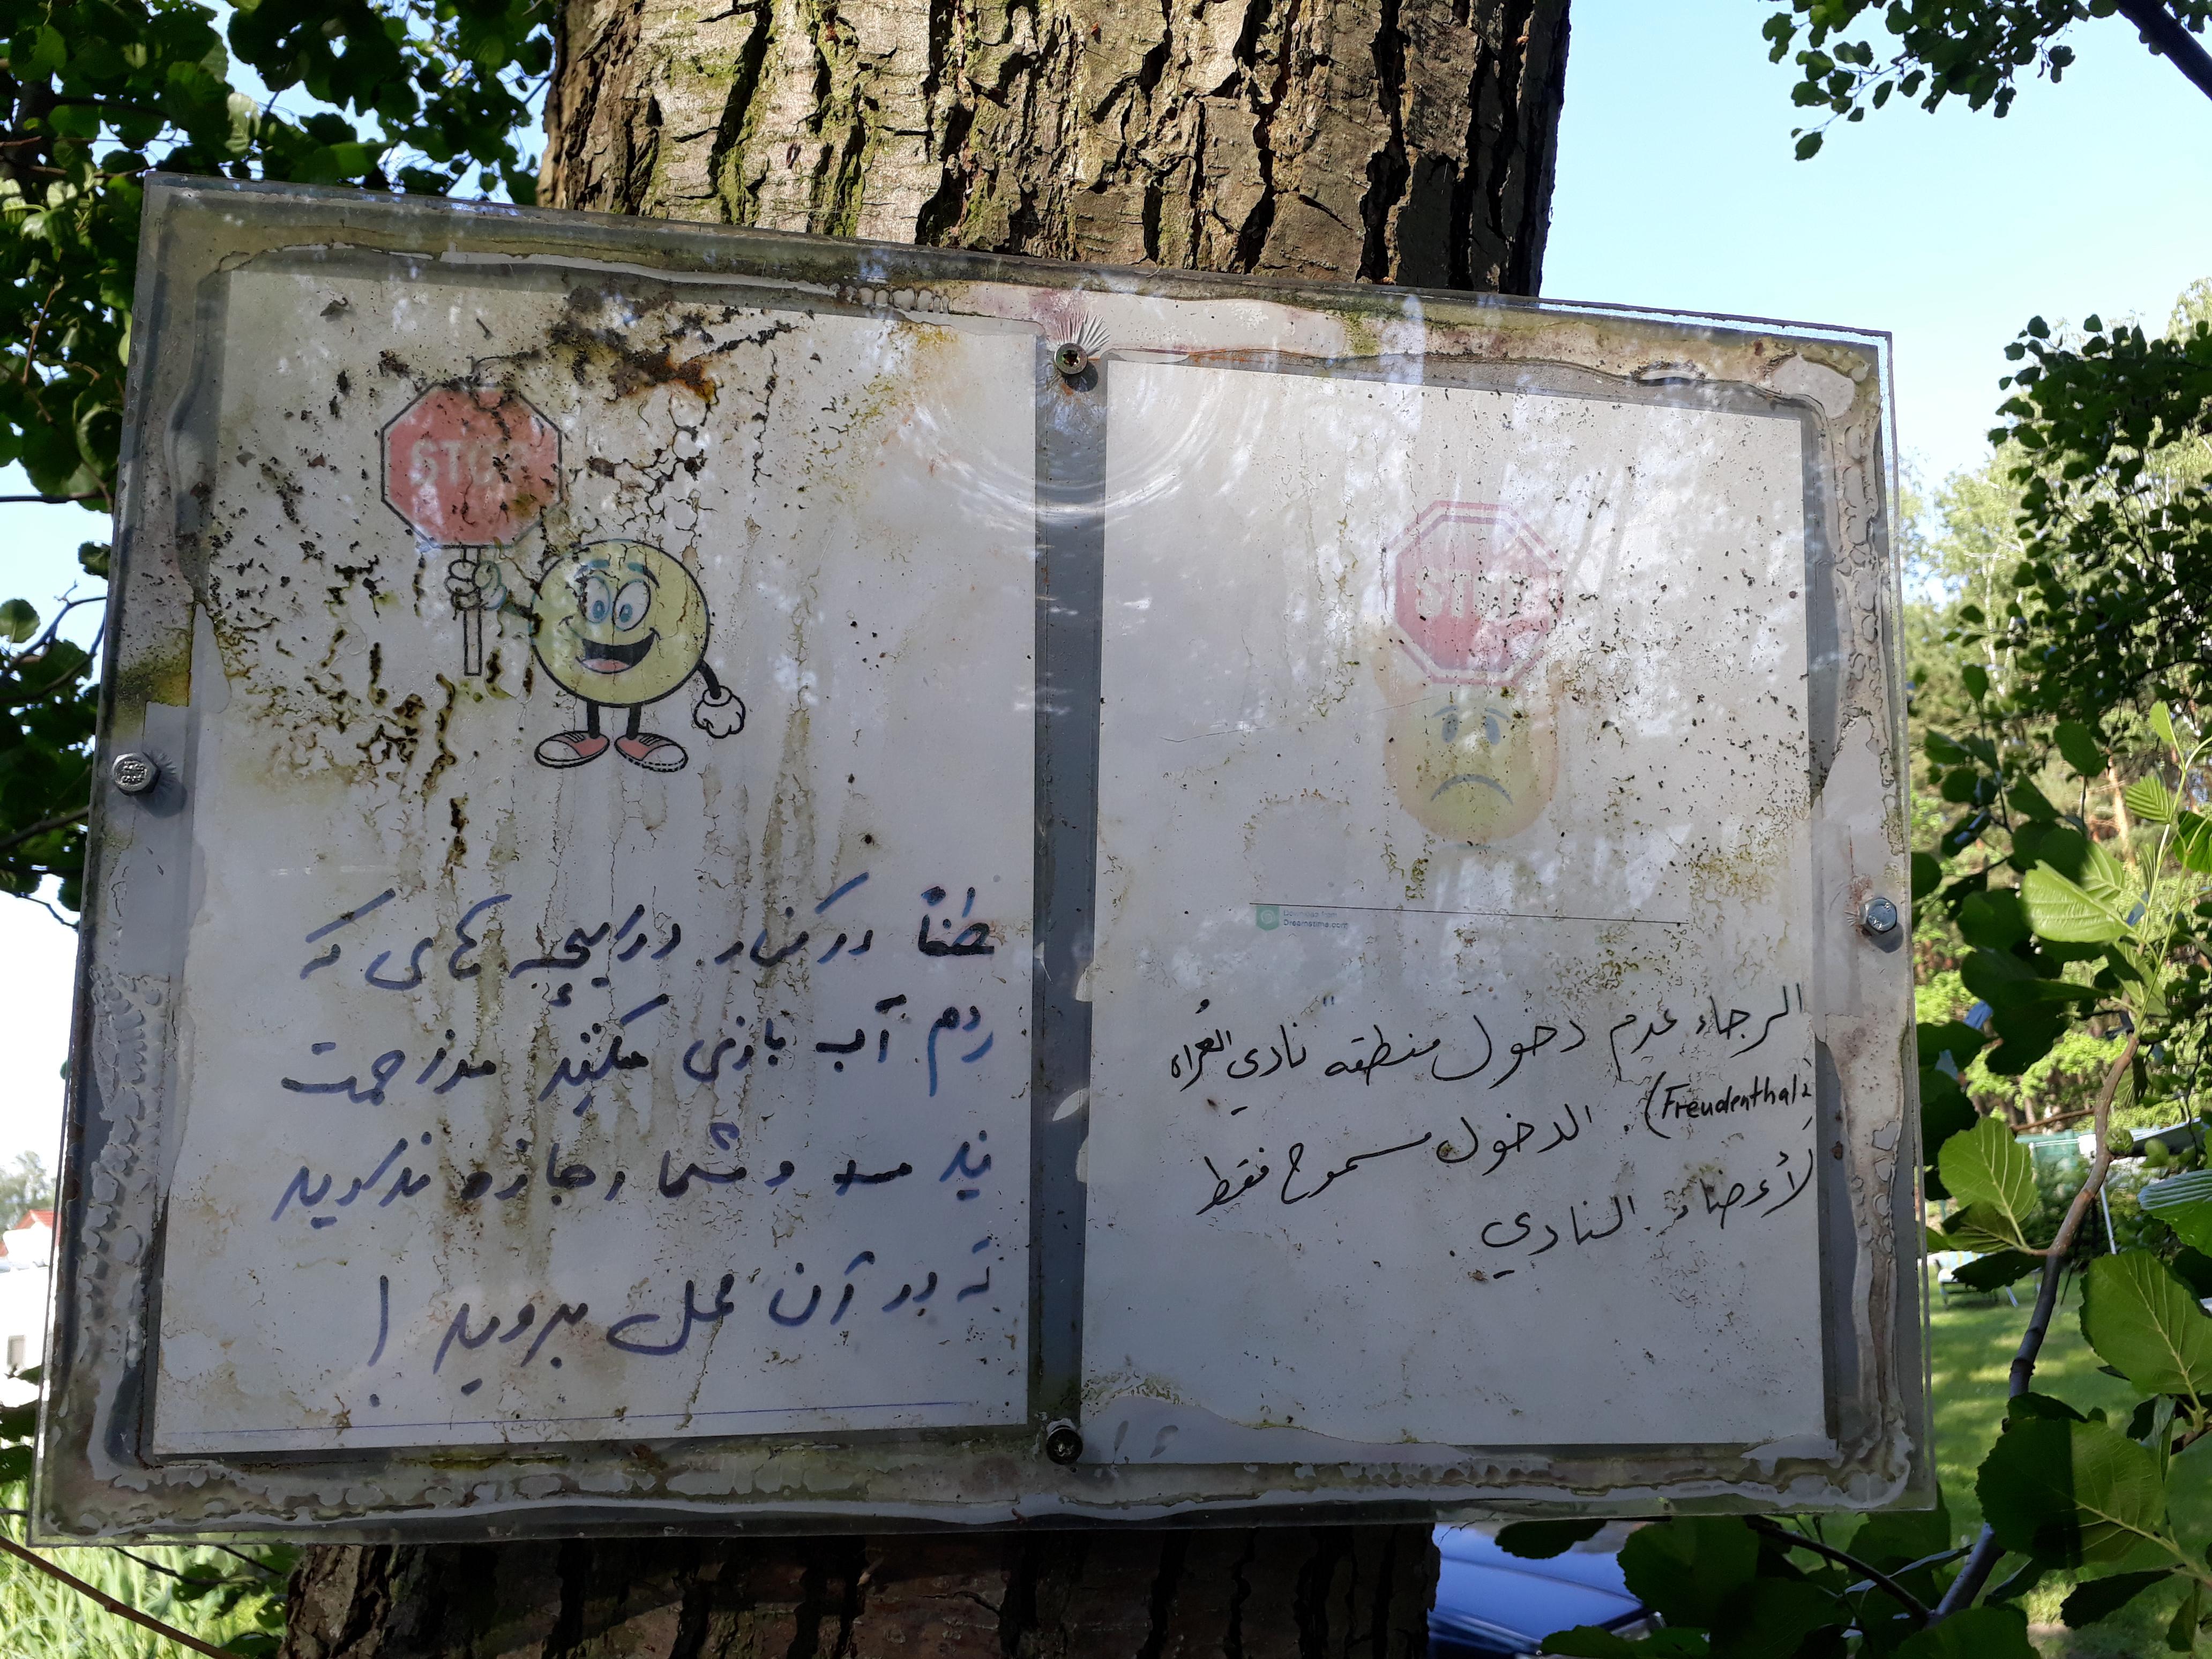 STOP
لطفاً در کنار دریاچه های که
ردم آب بازی میکنند مزاحمت
نید و شما اجازه ندارید
که در آن محل بروید !
STOP
Download from
Dreamstime.com
الرجاء عدم دخول منطقة "نادي العُراة
(Freudenthal). الدخول مسموح فقط
لأعضاء النادي.